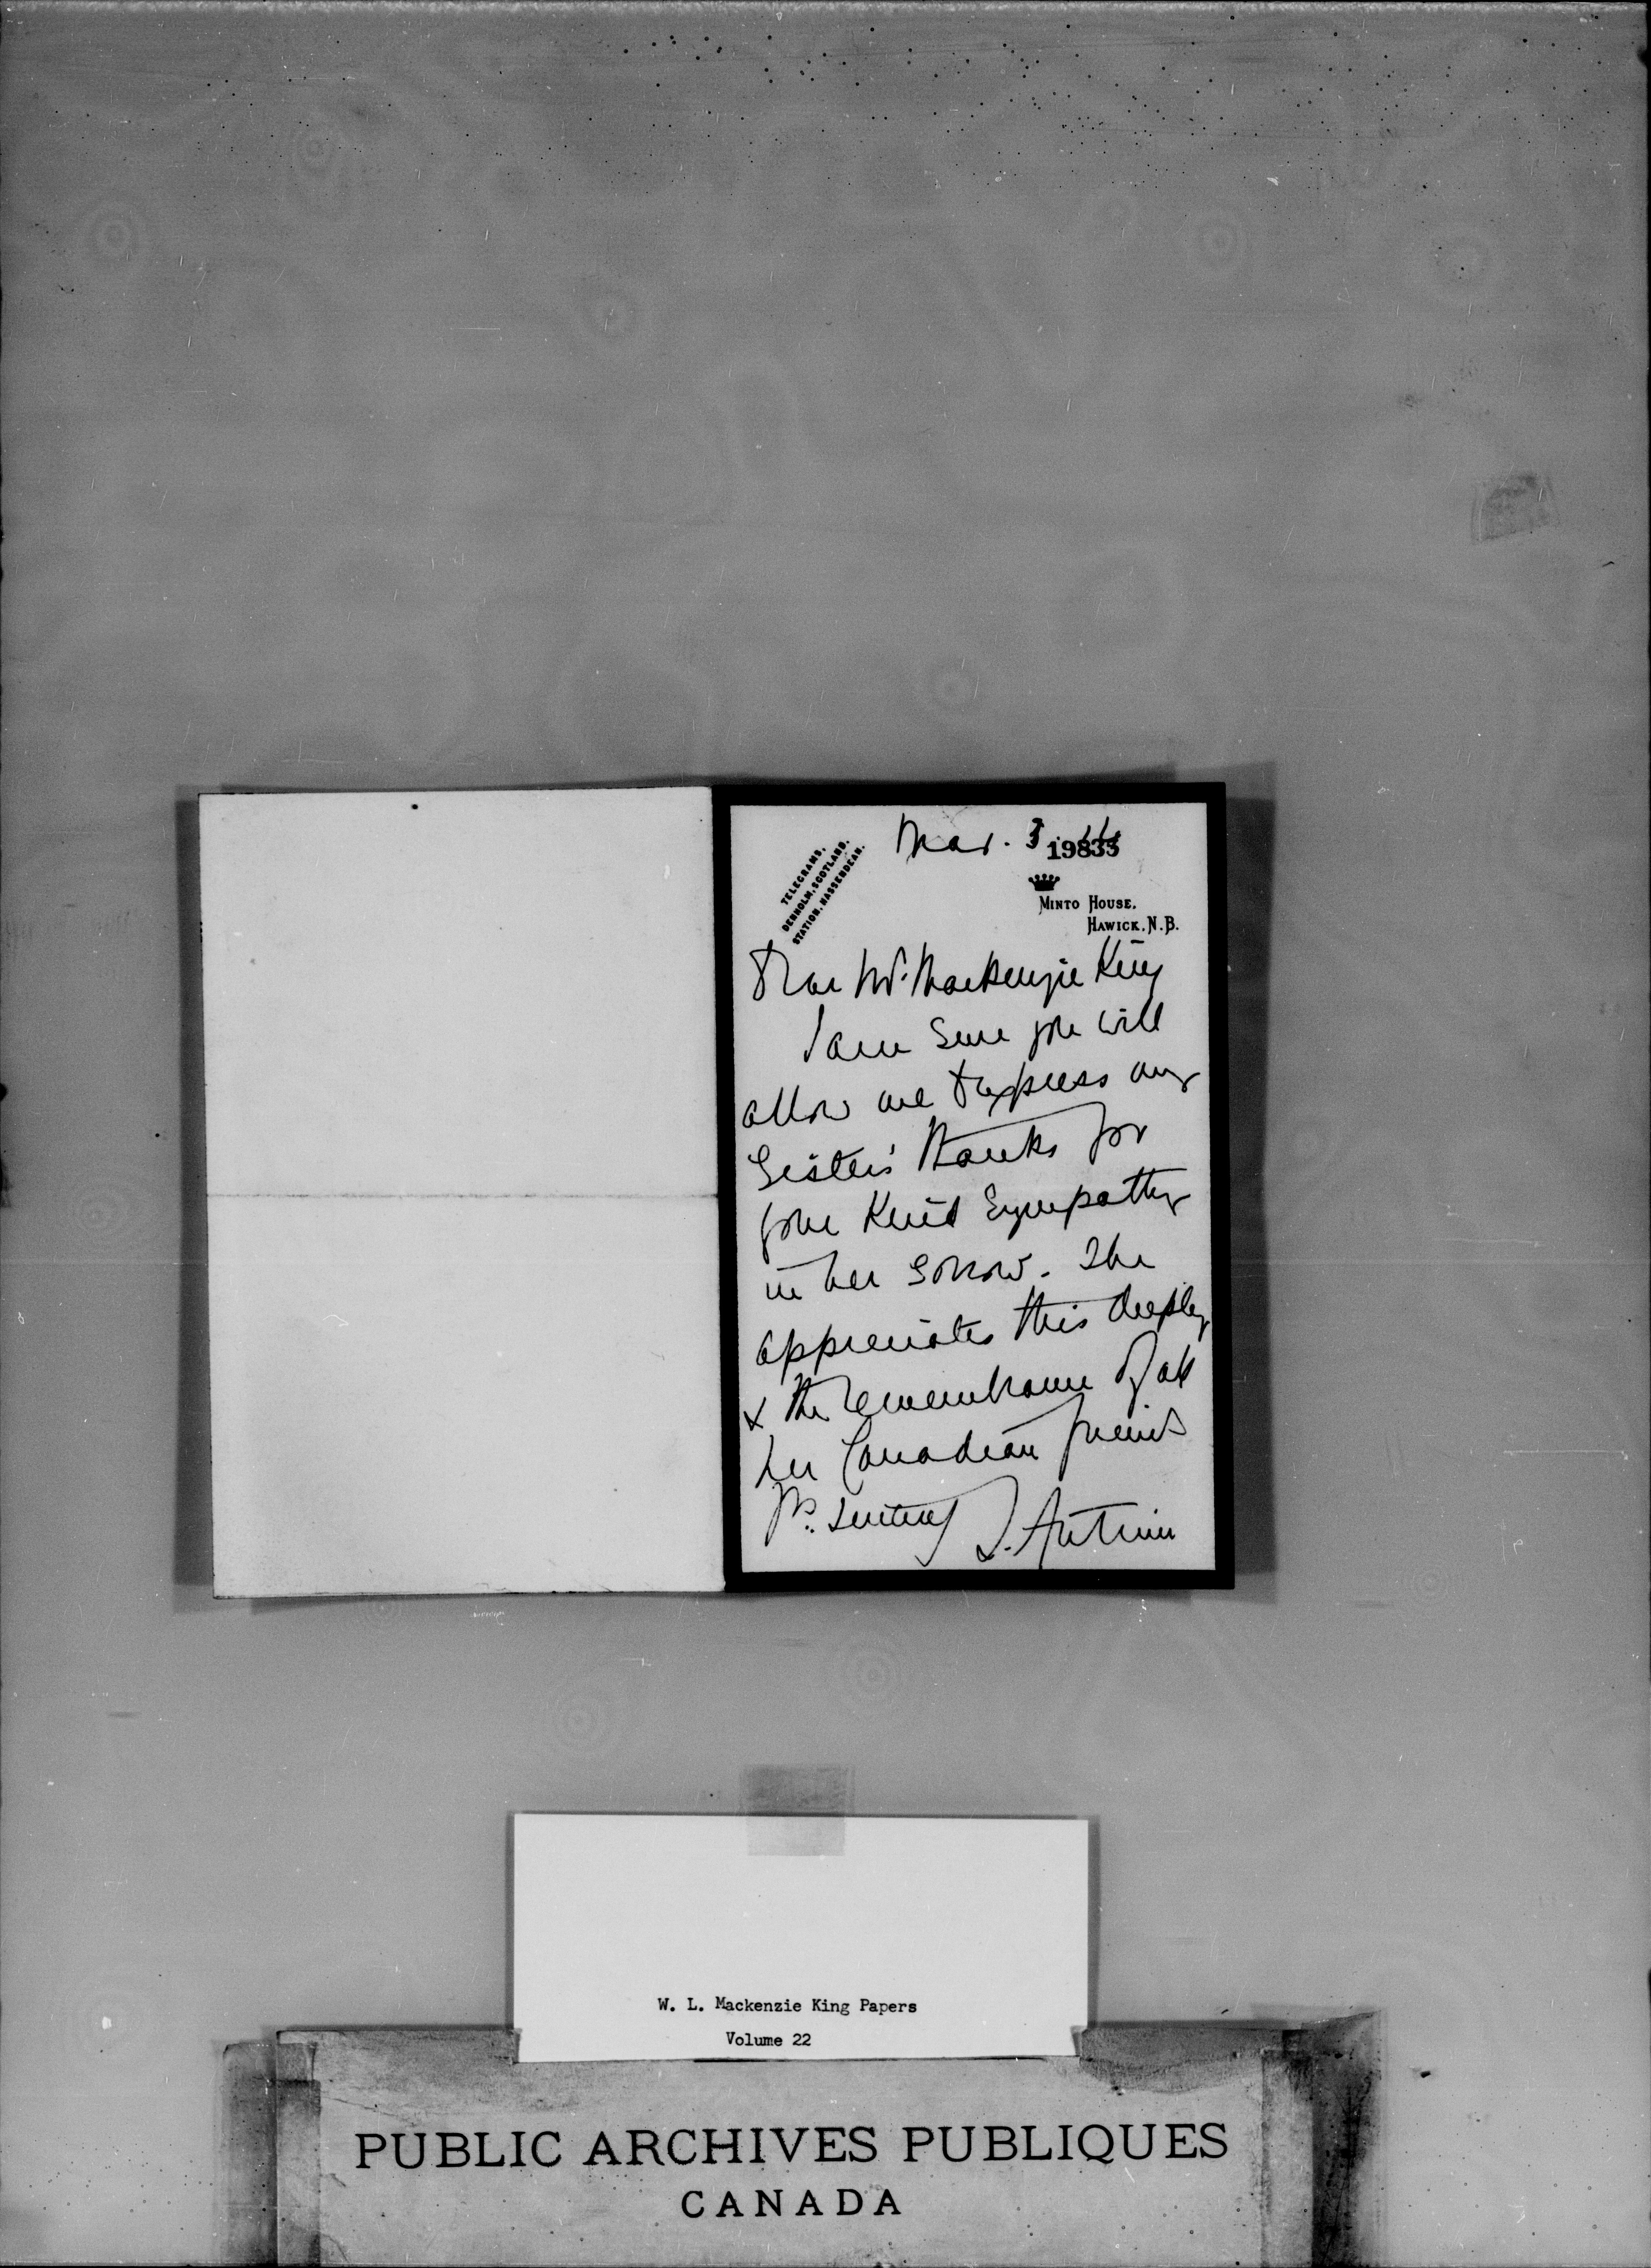 Mar. 3
19835
TELEGRAMS,
DENHOLM, SCOTLAND.
STATION, HASSENDEAN.
MINTO HOUSE,
HAWICK, N.B.
Dear Mr. Mackenzie King
I am sure you will
allow me to express my
Sister's thanks for
your kind sympathy
in her sorrow. She
appreciates this deeply
& the remembrance of all
her Canadian friends
Yrs. sincerely J. Antrim
W. L. Mackenzie King Papers
Volume 22
PUBLIC ARCHIVES PUBLIQUES
CANADA